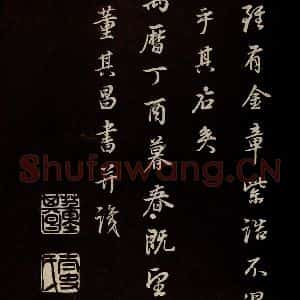 雖有金章紫誥不得
乎其右矣
萬曆丁酉暮春既望
董其昌書并識
Shufawang.CN